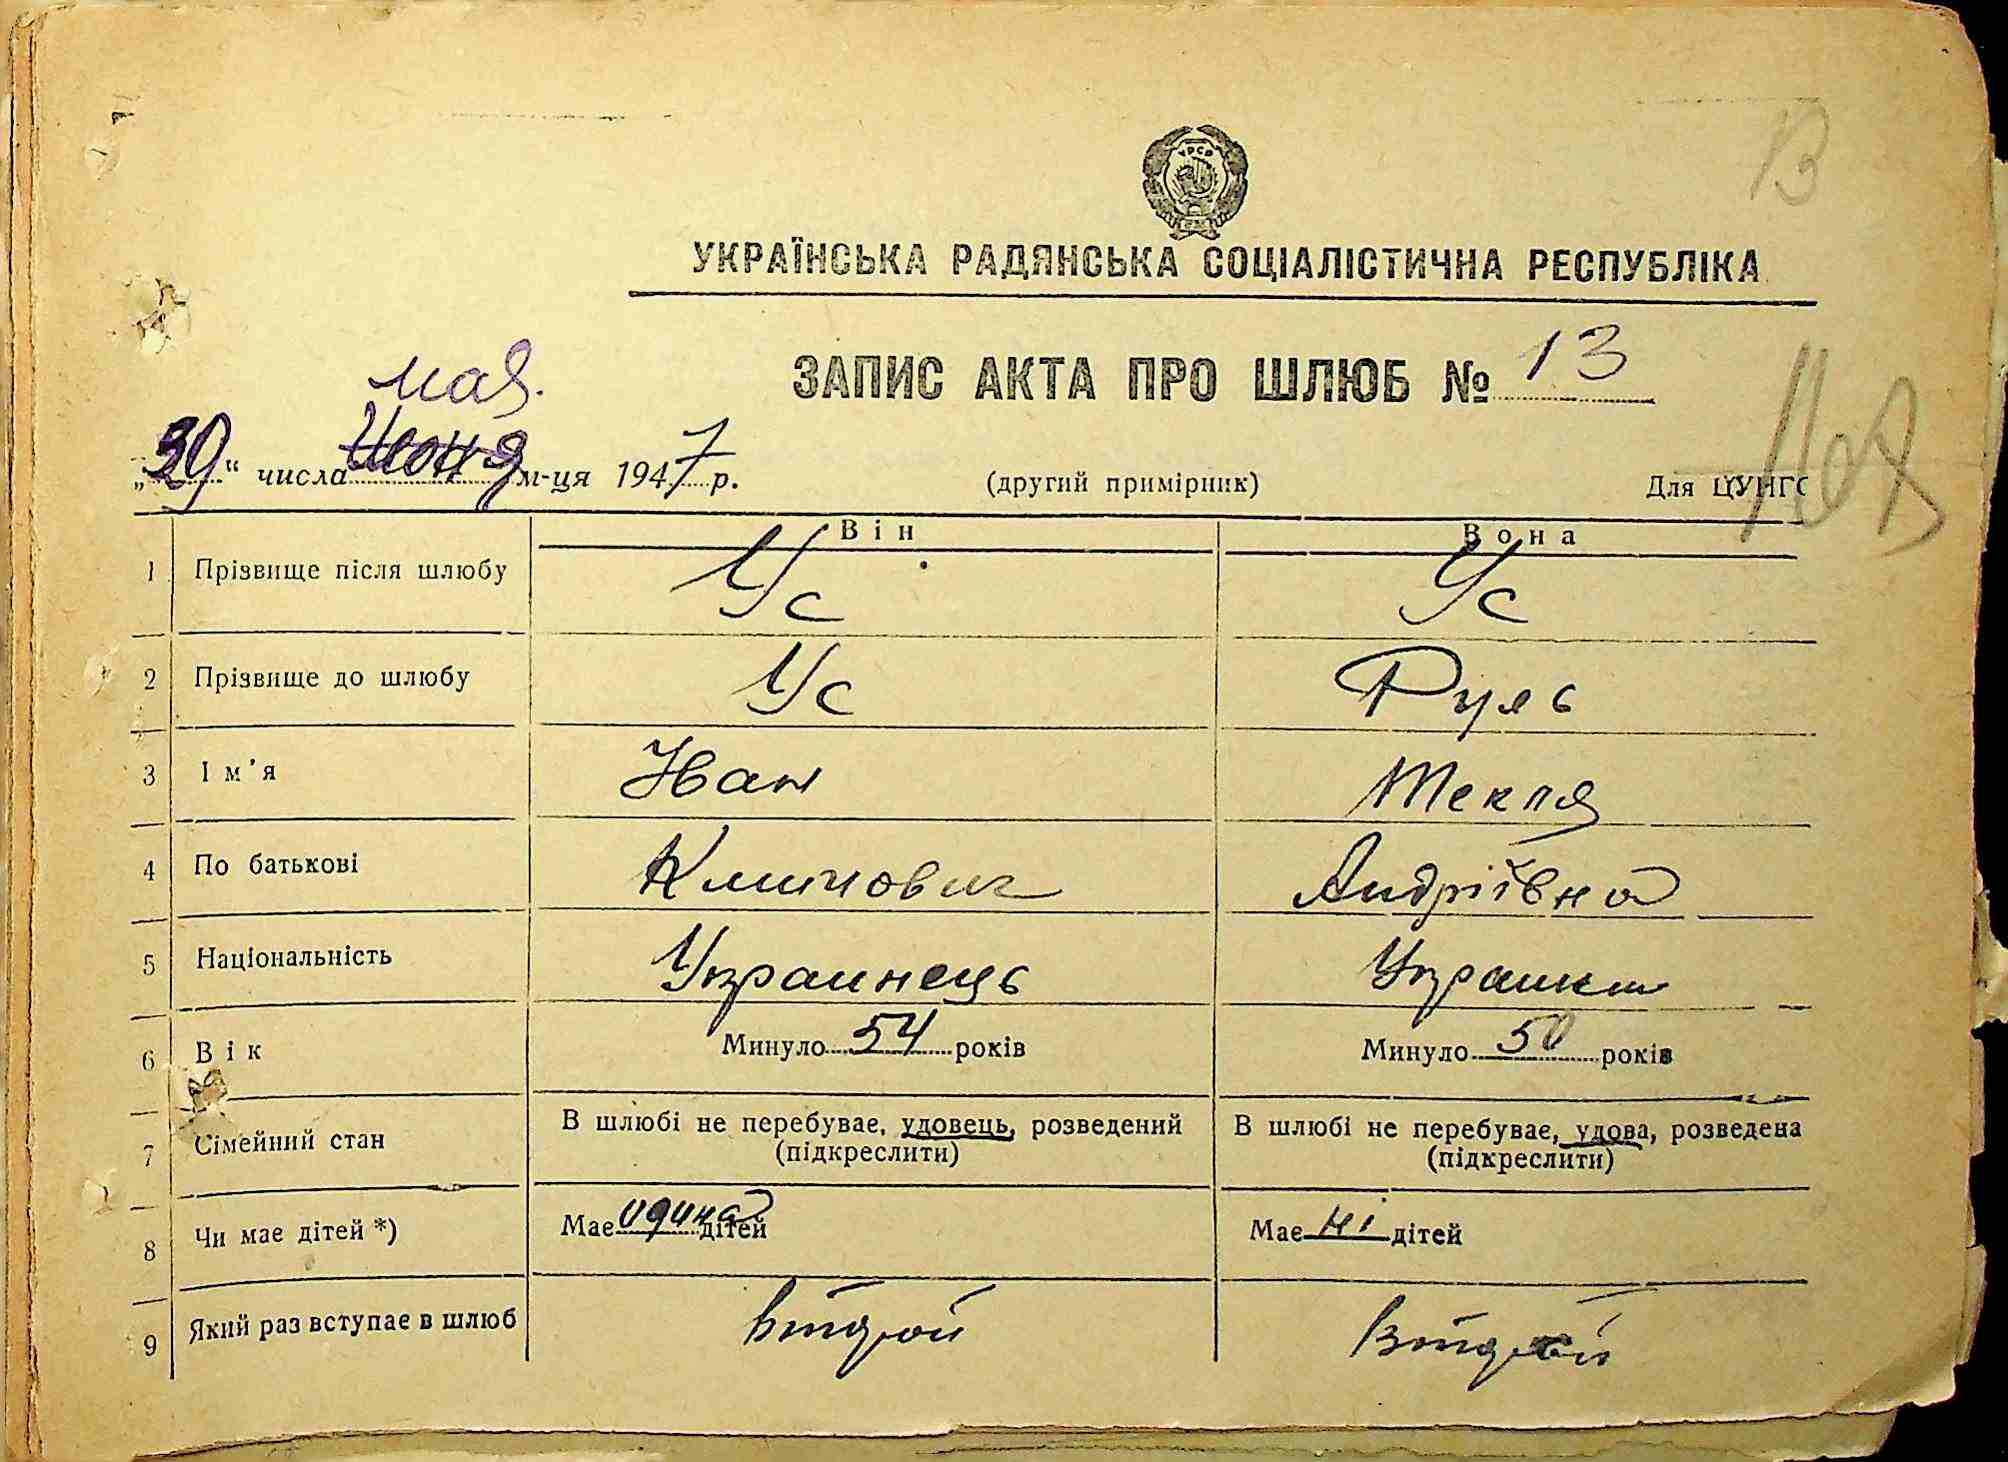 В
УРСР
УКРАЇНСЬКА РАДЯНСЬКА СОЦІАЛІСТИЧНА РЕСПУБЛІКА
ЗАПИС АКТА ПРО ШЛЮБ № 13
мая.
„ “ числа Июня м-ця 1947 р. (другий примірник) Для ЦУНГС
Він Вона
1 Прізвище після шлюбу Ус Ус
2 Прізвище до шлюбу Ус Руль
3 Ім'я Иван Текля
4 По батькові Климович Андріївна
5 Національність Украинець Украинка
6 Вік Минуло 54 років Минуло 50 років
7 Сімейний стан В шлюбі не перебуває, удовець, розведений (підкреслити) В шлюбі не перебуває, удова, розведена (підкреслити)
8 Чи має дітей *) Має одина дітей Має ні дітей
9 Який раз вступає в шлюб второй второй